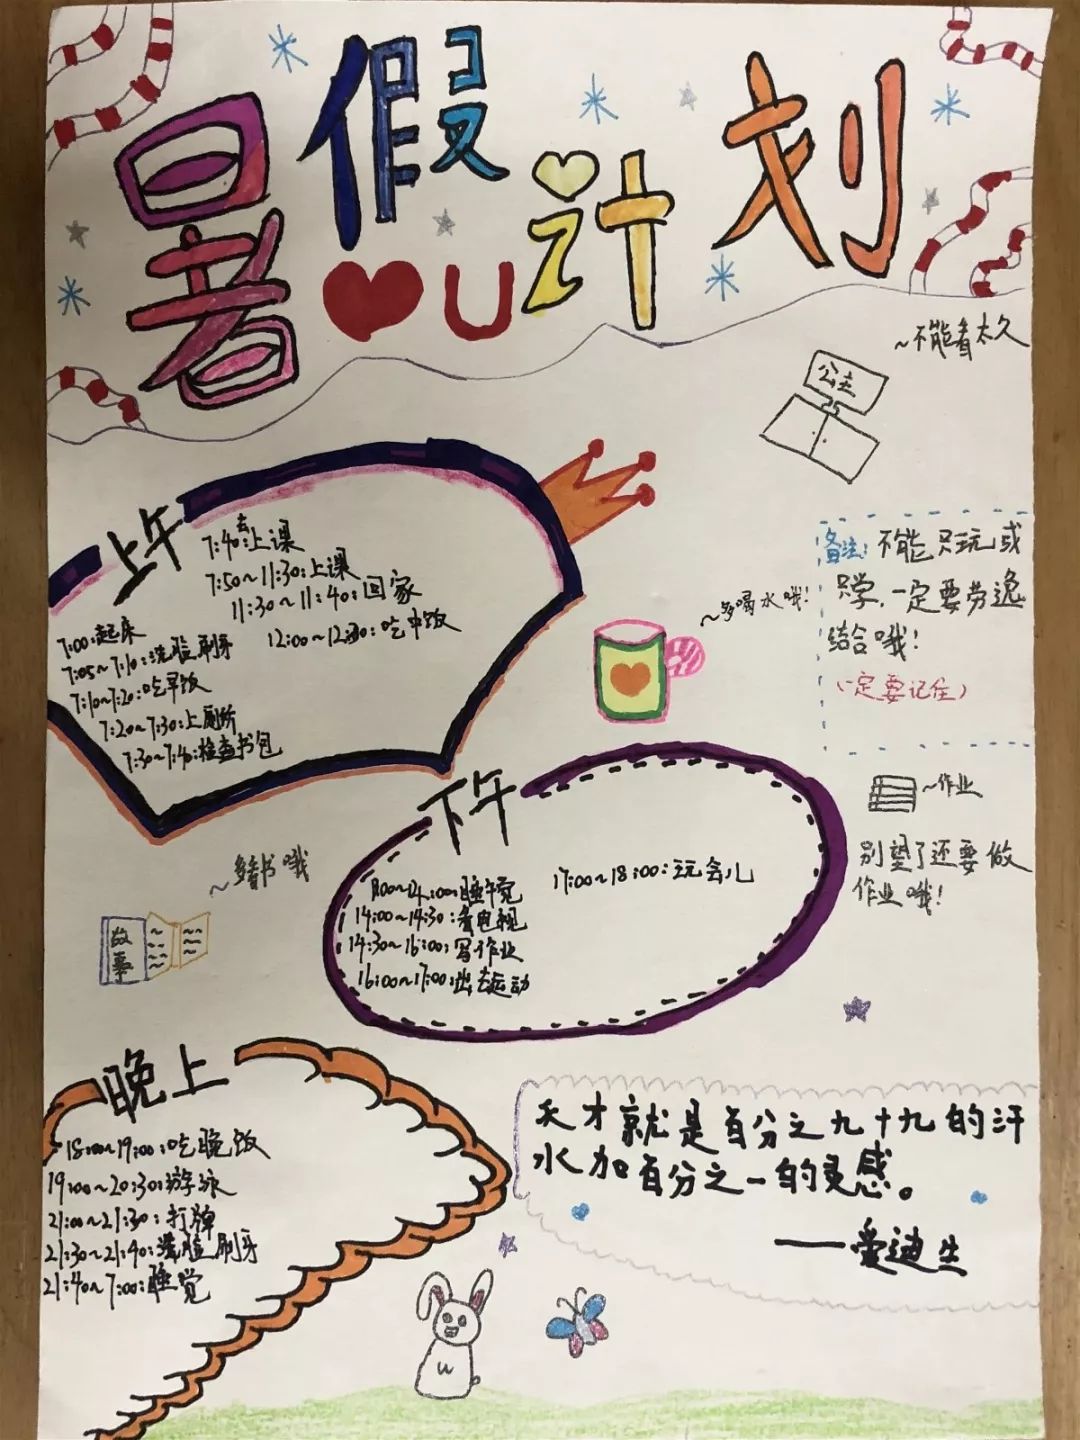 暑假计划
U
~不能看太久
公主
上午
7:40:去上课
7:50~11:30:上课
11:30~11:40:回家
12:00~12:30:吃中饭
7:00:起床
7:05~7:10:洗脸刷牙
7:10~7:20:吃早饭
7:20~7:30:上厕所
7:30~7:40:检查书包
~多喝水哦!
备注:不能只玩或
只学,一定要劳逸
结合哦!
(一定要记住)
~作业
别望了还要做
作业哦!
~多看书哦
故事
下午
睡午觉
14:00~14:30:看电视
14:30~16:00:写作业
16:00~17:00:出去运动
17:00~18:00:玩会儿
晚上
18:00~19:00:吃晚饭
19:00~20:30:游泳
21:00~21:30:打牌
21:30~21:40:洗脸刷牙
21:40~7:00:睡觉
天才就是百分之九十九的汗
水加百分之一的灵感。
——爱迪生